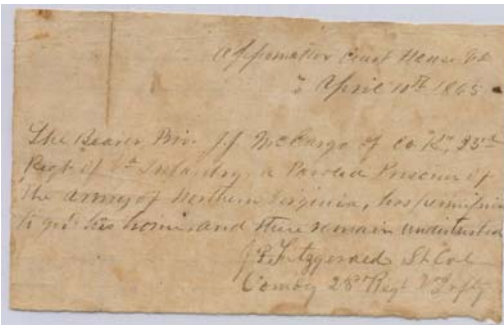 Appomattox Court House Va
April 10th 1865
The Bearer Priv. J.J. McCargo of Co. "K",
Regt of Va Infantry, a Paroled Prisoner of
the army of Northern Virginia, has permission
to go to his home, and there remain undisturbed
Fitzgerald Lt Col
Comdg Regt Va Infty